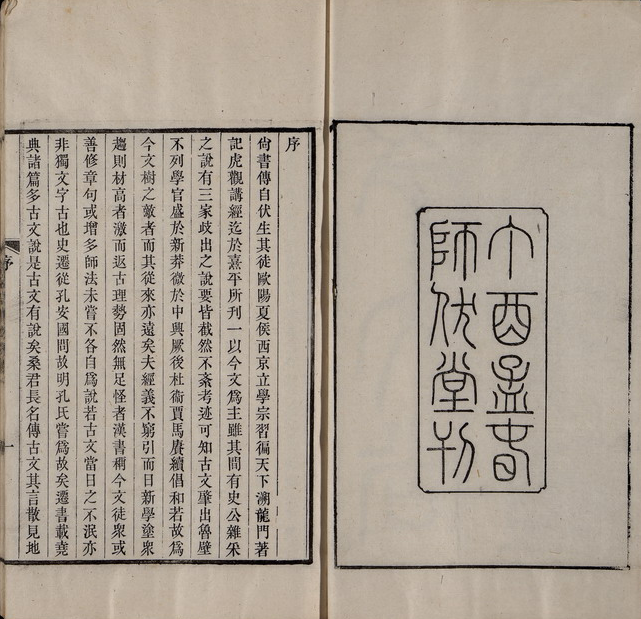 丁酉孟春
師伏堂刊
序
尙書傳自伏生其徒歐陽夏侯西京立學宗習徧天下溯龍門著
記虎觀講經迄於熹平所刊一以今文爲主雖其間有史公雜采
之說有三家歧出之說要皆截然不紊考迹可知古文肇出魯壁
不列學官盛於新莽微於中興厥後杜衞賈馬賡續倡和若故爲
今文樹之敵者而其從來亦遠矣夫經義不窮引而日新學塗衆
趨則材高者激而返古理勢固然無足怪者漢書稱今文徒衆或
善修章句或增多師法未嘗不各自爲說若古文當日之不泯亦
非獨文字古也史遷從孔安國問故明孔氏嘗爲故矣遷書載堯
典諸篇多古文說是古文有說矣桑君長名傳古文其言散見地
序
一